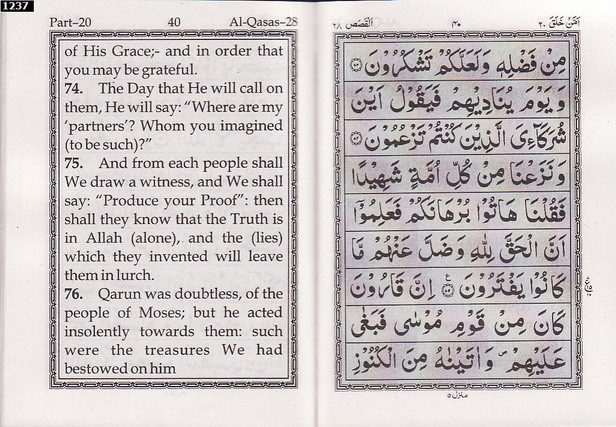 1237
Part–20 40 Al-Qasas–28
of His Grace;- and in order that
you may be grateful.
74. The Day that He will call on
them, He will say: “Where are my
‘partners’? Whom you imagined
(to be such)?”
75. And from each people shall
We draw a witness, and We shall
say: “Produce your Proof”: then
shall they know that the Truth is
in Allah (alone), and the (lies)
which they invented will leave
them in lurch.
76. Qarun was doubtless, of the
people of Moses; but he acted
insolently towards them: such
were the treasures We had
bestowed on him
اَمَّنْ خَلَقَ ۲۰ ۴۰ اَلْقَصَص ۲۸
مِنْ فَضْلِهٖ وَلَعَلَّكُمْ تَشْكُرُوْنَ ۝۷۳
وَ يَوْمَ يُنَادِيْهِمْ فَيَقُوْلُ اَيْنَ
شُرَكَآءِىَ الَّذِيْنَ كُنْتُمْ تَزْعُمُوْنَ ۝۷۴
وَنَزَعْنَا مِنْ كُلِّ اُمَّةٍ شَهِيْدًا
فَقُلْنَا هَاتُوْا بُرْهَانَكُمْ فَعَلِمُوْۤا
اَنَّ الْحَقَّ لِلّٰهِ وَضَلَّ عَنْهُمْ مَّا
كَانُوْا يَفْتَرُوْنَ ۝۷۵ اِنَّ قَارُوْنَ
كَانَ مِنْ قَوْمِ مُوْسٰى فَبَغٰى
عَلَيْهِمْ ۪ وَاٰتَيْنٰهُ مِنَ الْكُنُوْزِ
منزل ۵